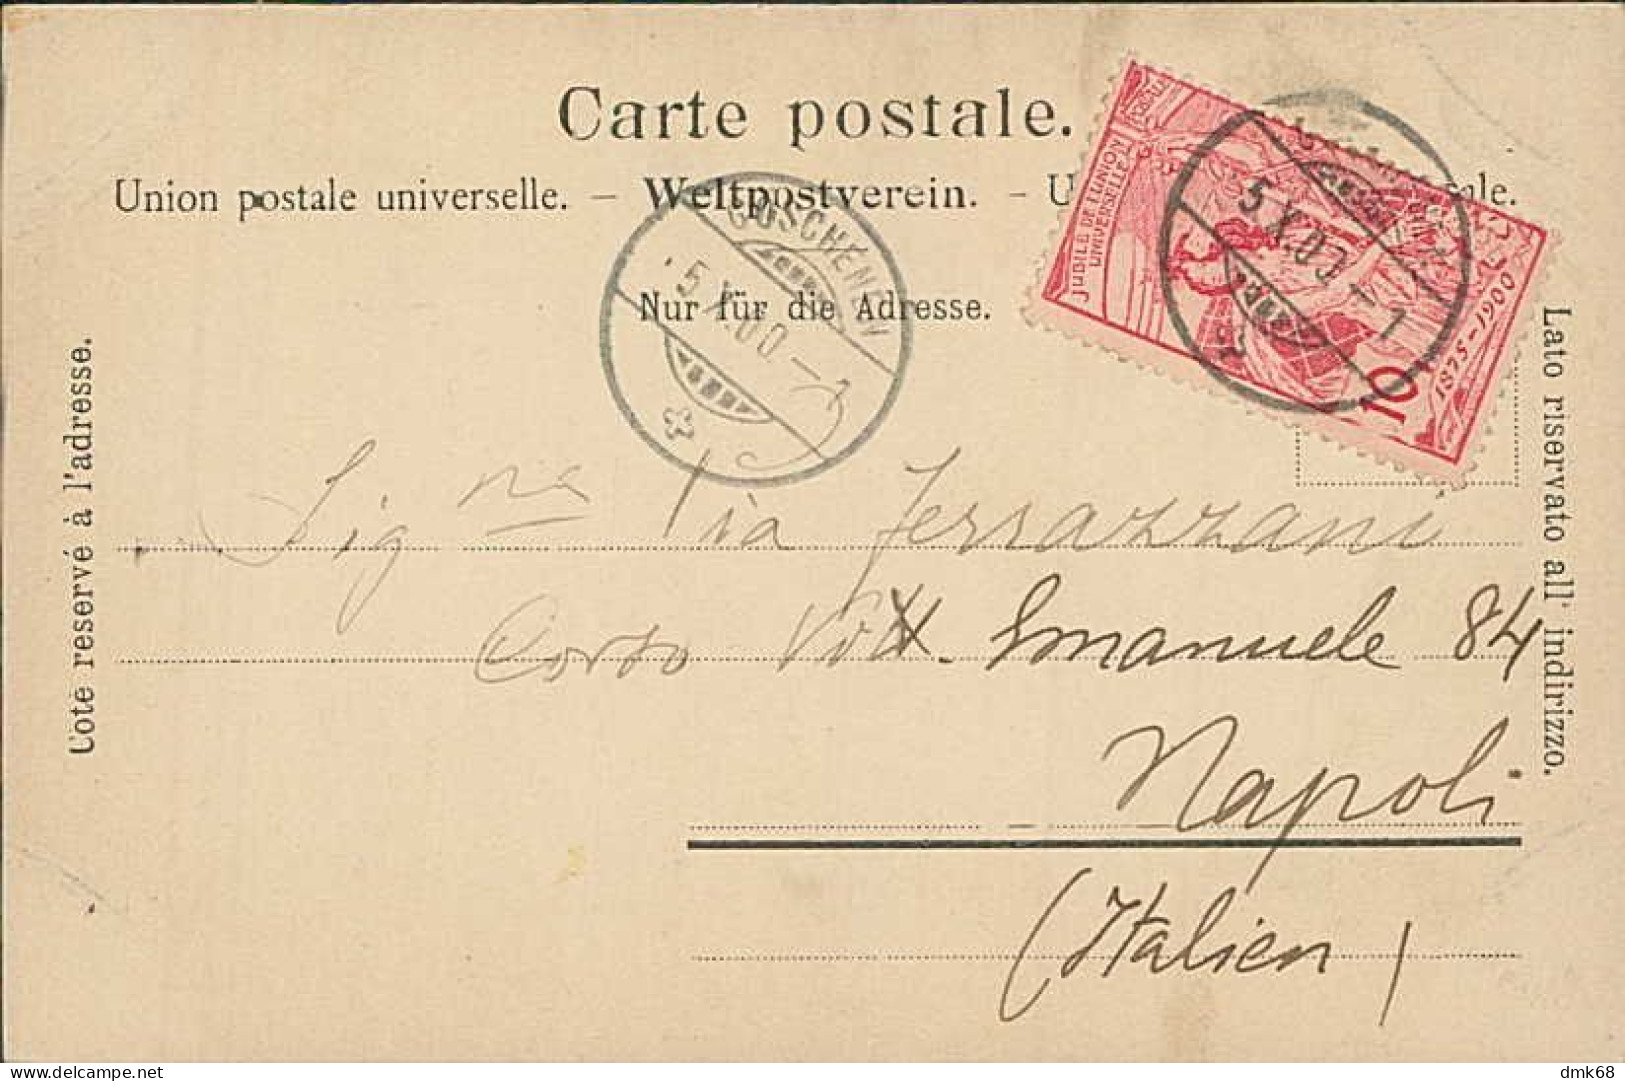 Carte postale.
Union postale universelle. — Weltpostverein. — U
Nur für die Adresse.
Côte reservé à l'adresse.
Lato riservato all' indirizzo.
JUBILÉ DE L'UNION
POSTALE
UNIVERSELLE
1875-1900
10
5 X.00 - 7
GÖSCHENEN
5 X.00 - 
Sig na Lia Terrazzani
Corso Vitt. Emanuele 84
Napoli
(Italien)
delcampe.net
dmk68